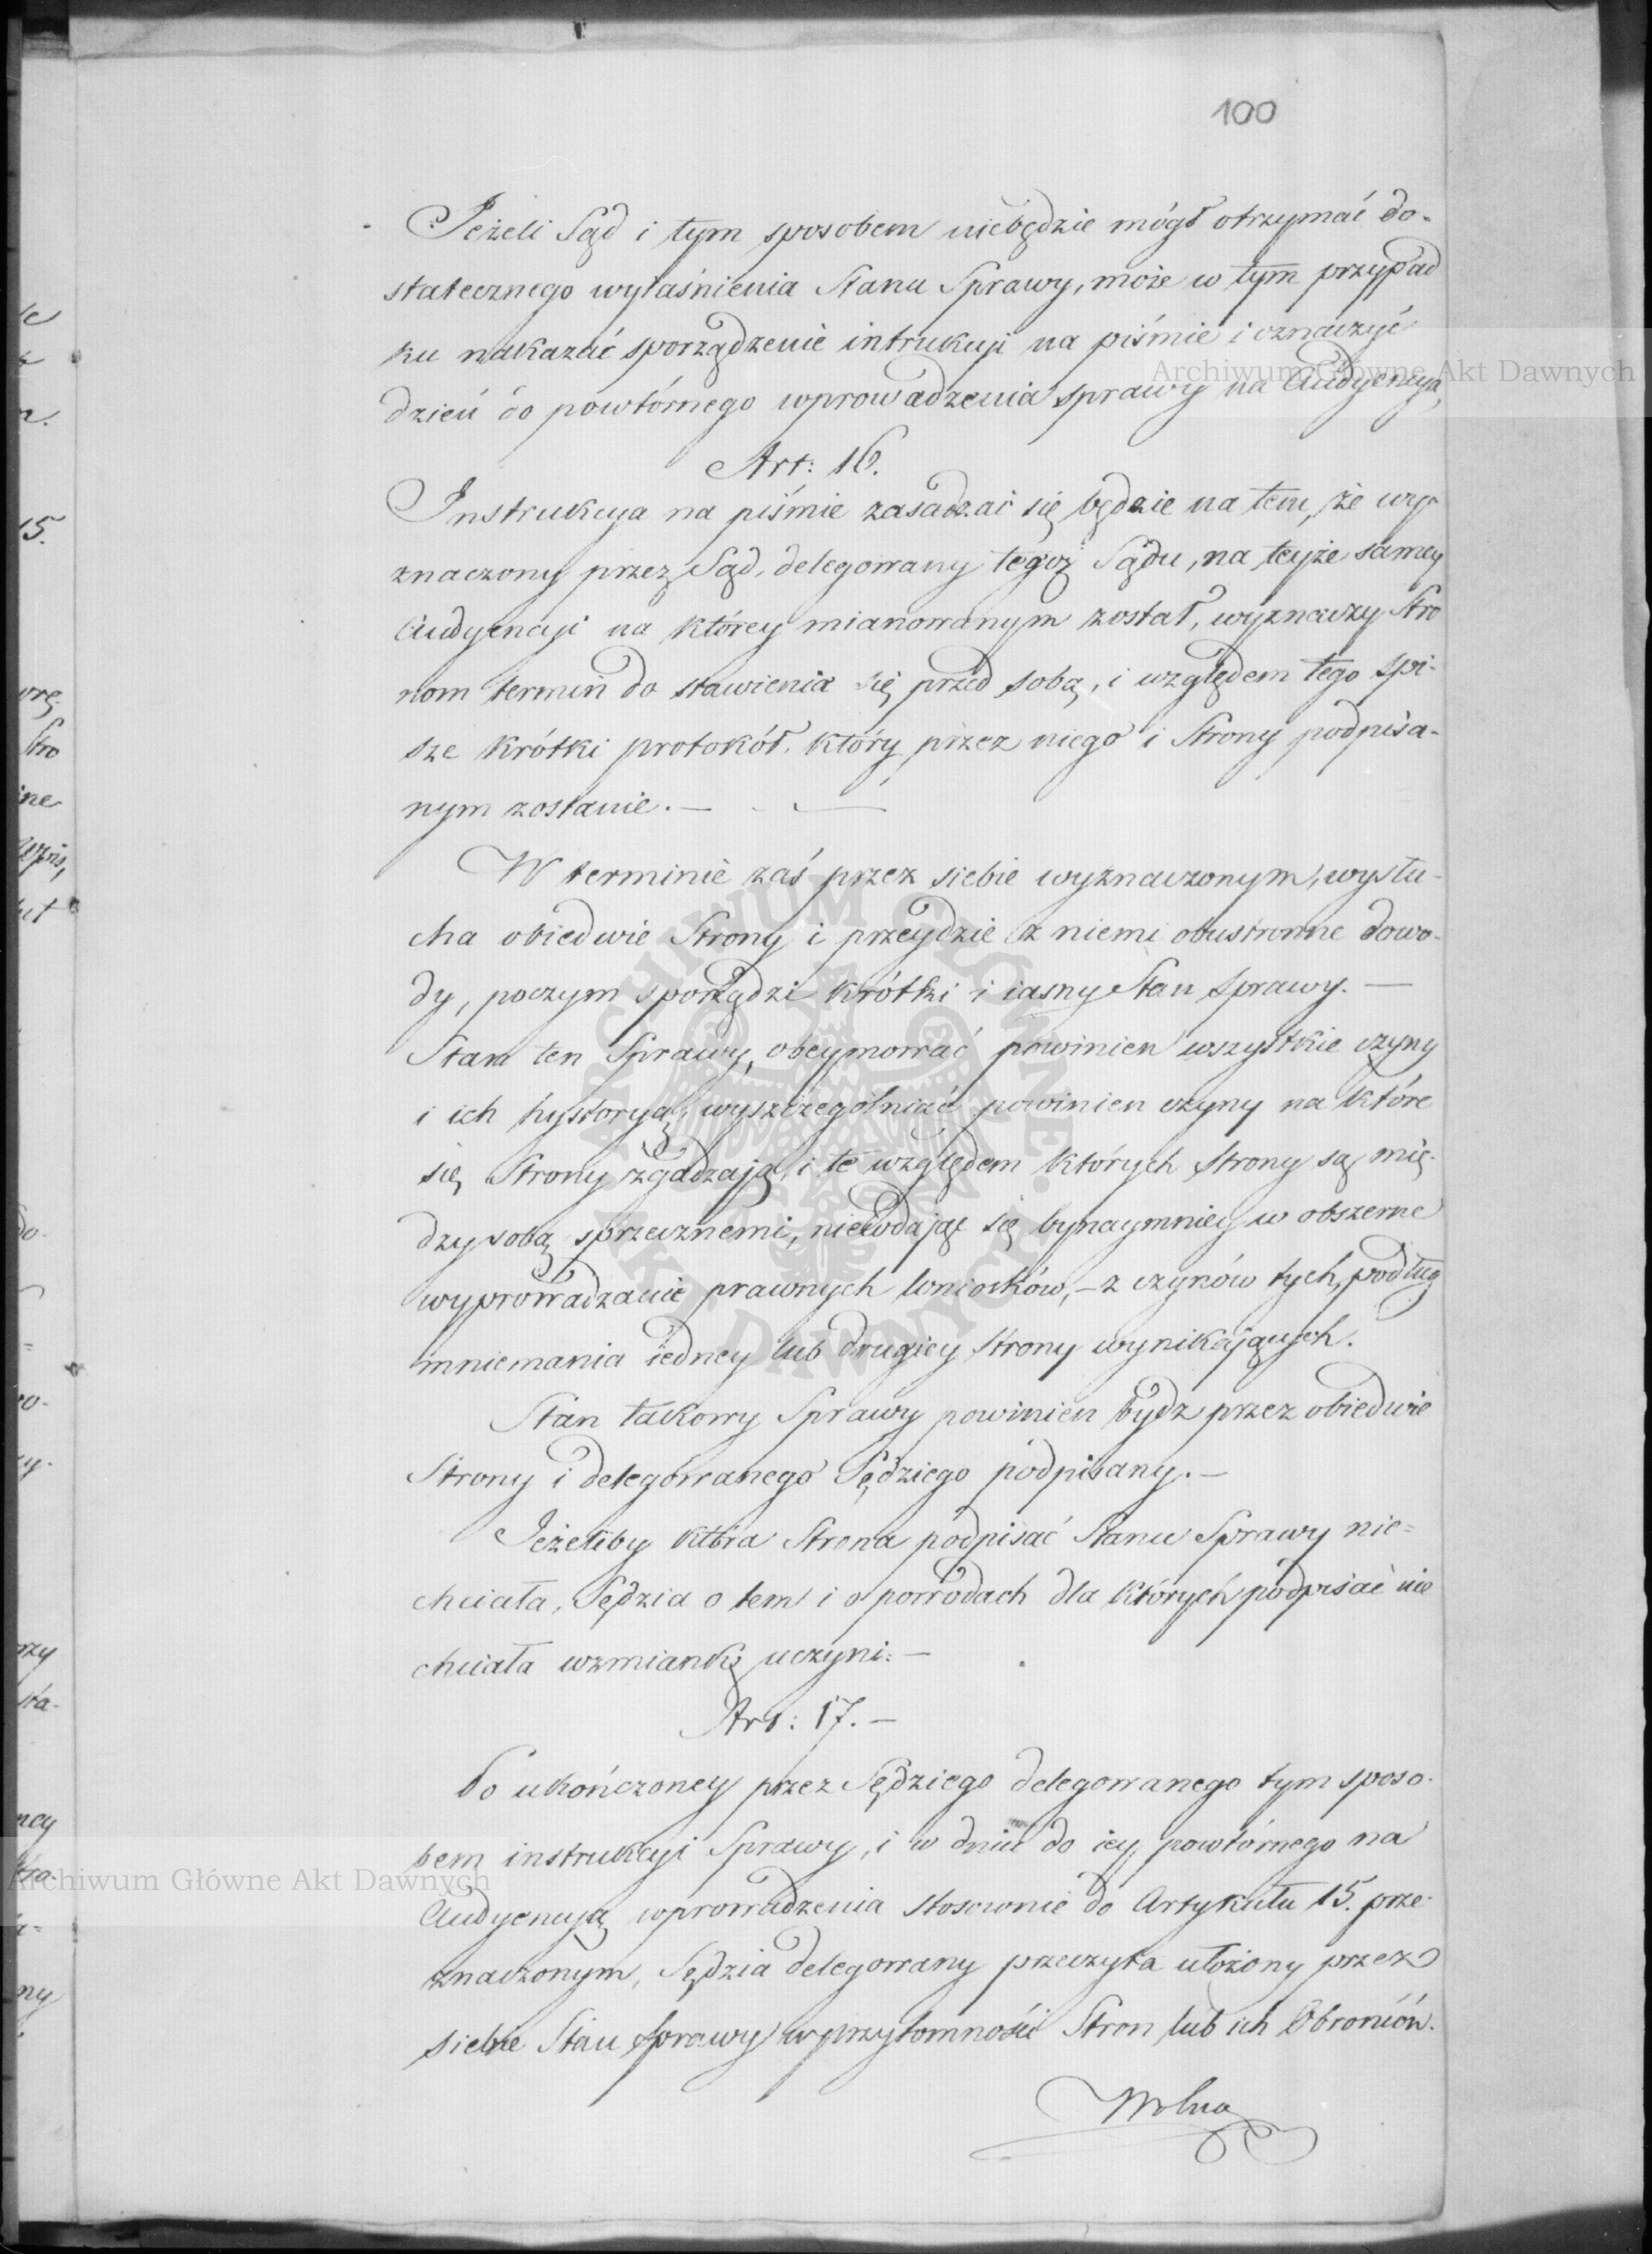 100
Jeżeli Sąd i tym sposobem niebędzie mógł otrzymać do-
statecznego wyiaśnienia Stanu Sprawy, może w tym przypad
ku nakazać sporządzenie intrukcyi na piśmie i oznaczyć
dzień do powtórnego wprowadzenia sprawy na Audyencyą,
Art: 16.
Instrukcya na piśmie zasadzać się będzie na tem, że wy-
znaczony przez Sąd, delegowany tegoż Sądu, na teyże samey
Audyencyi na którey mianowanym został, wyznaczy Stro
nom termin do stawienia się przed sobą, i względem tego spi-
sze krótki protokół, który przez niego i Strony podpisa-
nym zostanie. —
W terminie zaś przez siebie wyznaczonym, wysłu-
cha obiedwie Strony i przeydzie z niemi obustronne dowo-
dy, poczym sporządzi krótki i iasny Stan Sprawy. —
Stan ten Sprawy, obeymować powinien wszystkie czyny
i ich hystoryą, wyszczególniać powinien czyny na które
się Strony zgadzaią, i te względem których strony są mię-
dzy sobą sprzecznemi, niewdaiąc się bynaymniey w obszerne
wyprowadzanie prawnych wniosków, — z czynów tych, podług
mniemania iedney lub drugiey strony wynikaiących.
Stan takowy Sprawy powinien bydz przez obiedwie
Strony i delegowanego Sędziego podpisany. —
Jeżeliby która Strona podpisać Stanu Sprawy nie=
chciała, Sędzia o tem i o powodach dla których podpisać nie
chciała wzmiankę uczyni. —
Art: 17. —
Po ukończoney przez Sędziego delegowanego tym sposo-
bem instrukcyi Sprawy, i w dniu do iey powtórnego na
Audyencyą wprowadzenia stosownie do Artykułu 15. prze-
znaczonym, Sędzia delegowany przeczyta ułożony przez
siebie Stan Sprawy w przytomności Stron lub ich Obrońców.
Wolno